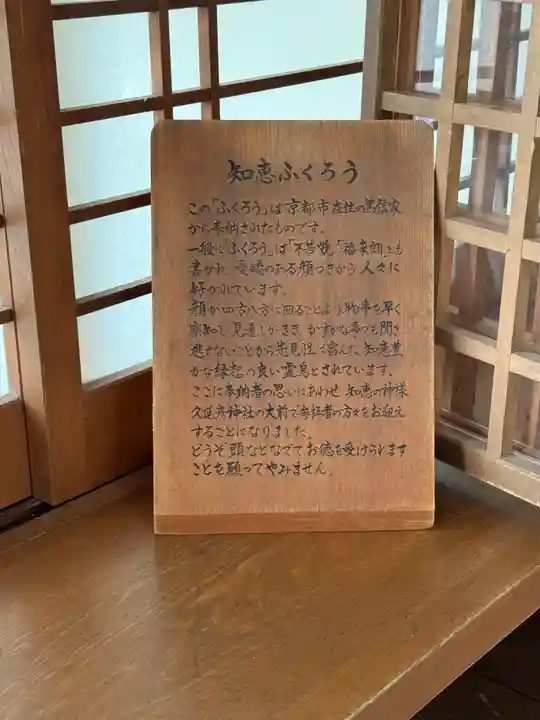 知恵ふくろう
この「ふくろう」は京都市在住の篤信家
から奉納されたものです。
一般に「ふくろう」は「不苦労」「福来朗」とも
書かれ、愛嬌のある顔つきから人々に
好かれています。
顔が四方八方に回ることより物事を早く
察知し、見通しがきき かすかな事でも聞き
逃さないことから先見性に富んだ知恵豊
かな縁起の良い霊鳥とされています。
ここに奉納者の思いにあわせ 知恵の神様
久延彦神社の大前で参拝者の方々をお迎え
することになりました。
どうぞ頭などなでてお徳を受けられます
ことを願ってやみません。